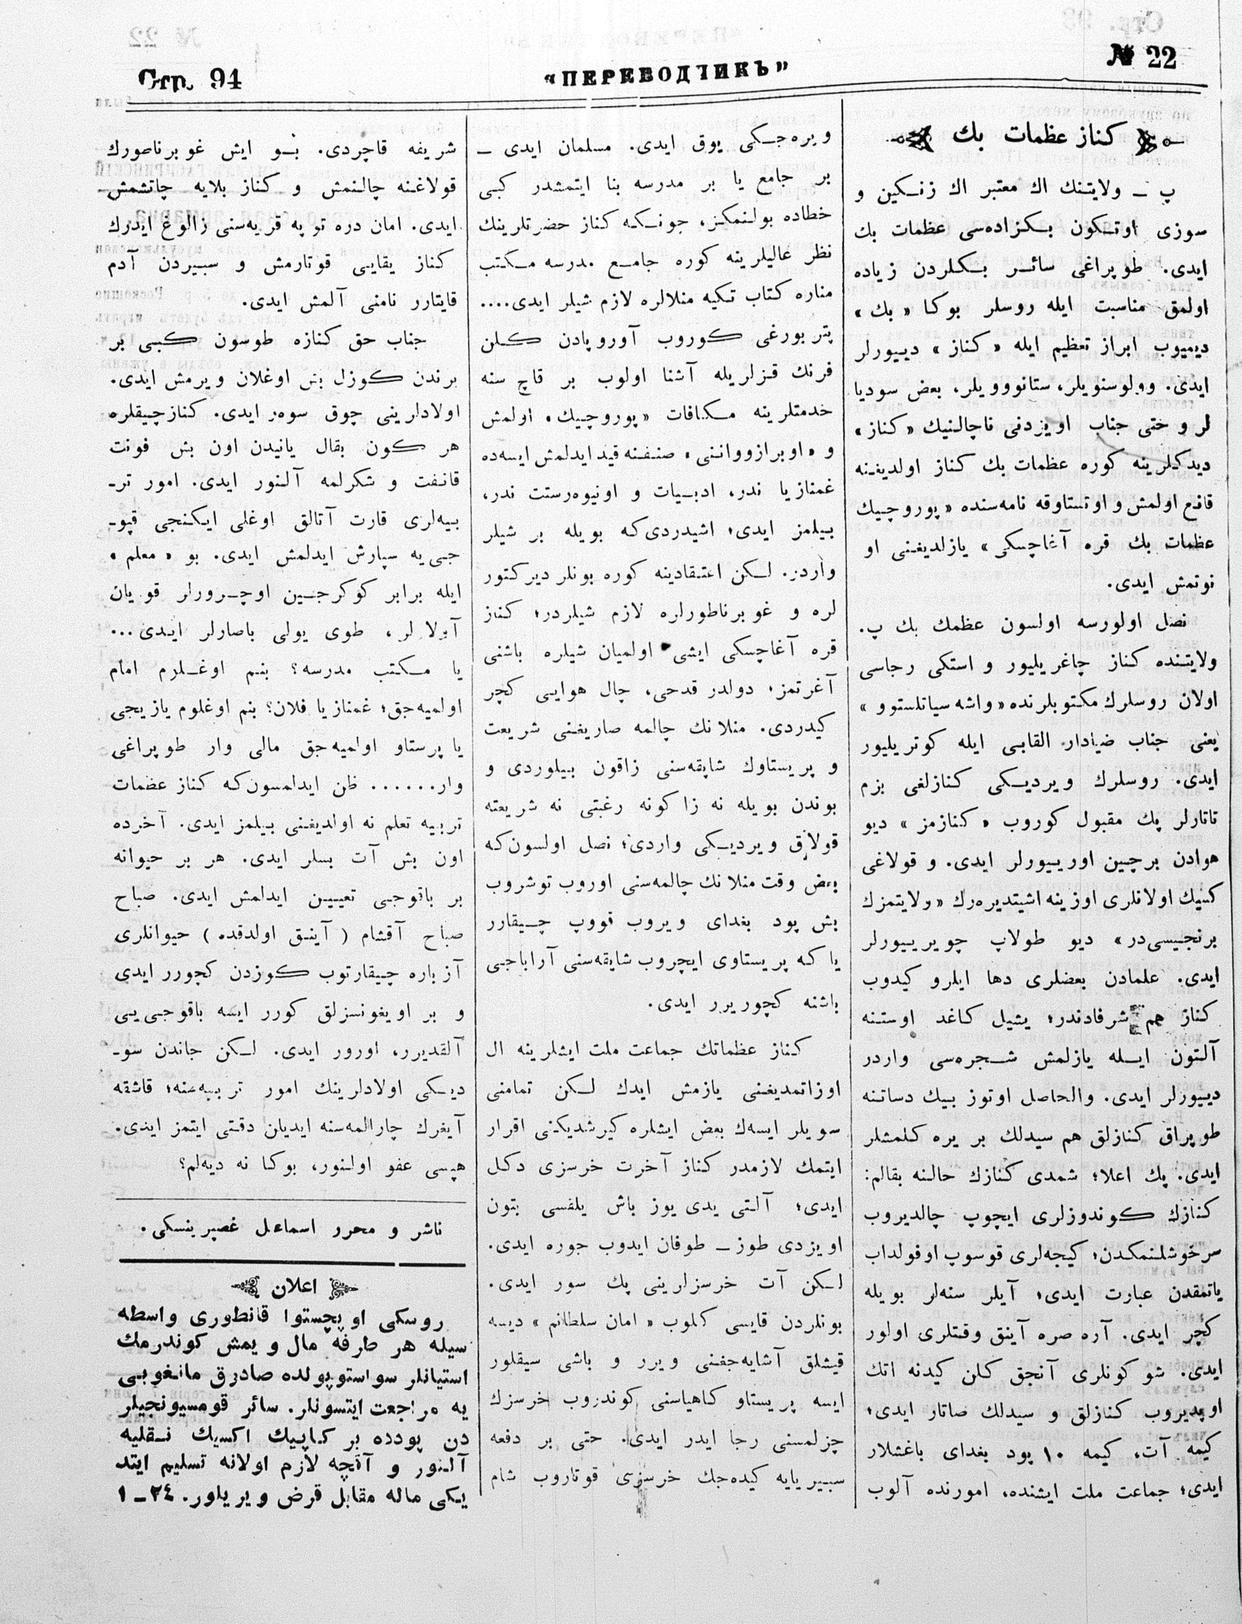 Стр. 94
"ПЕРЕВОДЧИКЪ"
№ 22
كناز عظمات بك
پ ــ ولايتنك اك معتبر اك زنكين و
سوزى اوتكون بكزاده‌سى عظمات بك
ايدى. طوپراغى سائر بكلردن زياده
اولمق مناسبت ايله روسلر بوكا « بك »
ديميوب ابراز تعظيم ايله « كناز » ديـيورلر
ايدى. وولوسنويلر، ستانووويلر، بعض سوديا
لر و حتى جناب اويزدنى ناچالنيك « كناز »
ديدكلرينه كوره عظمات بك كناز اولديغنه
قانع اولمش و اوتستاوقه نامه‌سنده « پوروچيك
عظمات بك قره آغاچسكى » يازلديغنى او
نوتمش ايدى.
نصل اولورسه اولسون عظمك بك پ.
ولايتنده كناز چاغريليور و استكى رجاسى
اولان روسلرك مكتوبلرنده « واشه سياتلستوو »
يعنى جناب ضيادار القابى ايله كوتريليور
ايدى. روسلرك ويرديكى كنازلغى بزم
تاتارلر پك مقبول كوروب « كنازمز » ديو
هوادن برچين اوريـيورلر ايدى. و قولاغى
كسيك اولانلرى اوزينه اشيتديره‌رك « ولايتمزك
برنجيسى‌در » ديو طولاپ چويريـيورلر
ايدى. علمادن بعضلرى دها ايلرو كيدوب
كناز هم شرفادندر؛ يشيل كاغد اوستنه
آلتون ايله يازلمش شجره‌سى واردر
ديـيورلر ايدى. والحاصل اوتوز بيك دساتنه
طوپراق كنازلق هم سيدلك بر يره كلمشلر
ايدى. پك اعلا؛ شمدى كنازك حالنه بقالم:
كنازك كوندوزلرى ايچوپ چالديروب
سرخوشلنمكدن؛ كيجه‌لرى قوسوپ اوفولداب
ياتمقدن عبارت ايدى؛ آيلر سنه‌لر بويله
كچر ايدى. آره صره آينق وقتلرى اولور
ايدى. شو كونلرى آنجق كلن كيدنه اتك
اوپديروب كنازلق و سيدلك صاتار ايدى؛
كيمه آت، كيمه ١٠ پود بغداى باغشلار
ايدى؛ جماعت ملت ايشنده، امورنده آلوب
ويره‌جكى يوق ايدى. مسلمان ايدى ــ
بر جامع يا بر مدرسه بنا ايتمشدر كبى
خطاده بولنمكز، جونكه كناز حضرتلرينك
نظر عاليلرينه كوره جامع مدرسه مكتب
مناره كتاب تكيه منلالره لازم شيلر ايدى....
پتربورغى كوروب آوروپادن كلن
فرنك قزلريله آشنا اولوب بر قاچ سنه
خدمتلرينه مكافات « پوروچيك » اولمش
و « اوبرازوواننى » صنفنه قيد ايدلمش ايسه‌ده
غمنازيا ندر، ادبيات و اونيوه‌رستت ندر،
بيلمز ايدى؛ اشيدردى‌كه بويله بر شيلر
واردر. لكن اعتقادينه كوره بونلر ديركتور
لره و غوبرناطورلره لازم شيلردر؛ كناز
قره آغاچسكى ايشى اولميان شيلره باشنى
آغرتمز؛ دولدر قدحى، چال هوايى كچر
كيدردى. منلانك چالمه صاريغنى شريعت
و پريستاوك شاپقه‌سنى زاقون بيلوردى و
بوندن بويله نه زاكونه رغبتى نه شريعته
قولاق ويرديكى واردى؛ نصل اولسون‌كه
بعض وقت منلانك چالمه‌سنى اوروب توشروب
بش پود بغداى ويروب قووپ چيقارر
يا كه پريستاوى ايچروب شاپقه‌سنى آراباجى
باشنه كچوريرر ايدى.
كناز عظماتك جماعت ملت ايشلرينه ال
اوزاتمديغنى يازمش ايدك لكن تمامنى
سويلر ايسه‌ك بعض ايشلره كيرشديكنى اقرار
ايتمك لازمدر كناز آخرت خرسزى دكل
ايدى؛ آلتى يدى يوز باش يلقسى بتون
اويزدى طوز ــ طوفان ايدوب جوره ايدى.
لكن آت خرسزلرينى پك سور ايدى.
بونلردن قايسى كلوب « امان سلطانم » ديسه
قيشلق آشايه‌جغنى ويرر و باشى سيقلور
ايسه پريستاو كاهياسنى كوندروب خرسزك
چزلمسنى رجا ايدر ايدى. حتى بر دفعه
سبيريايه كيده‌جك خرسزى قوتاروب شام
شريفه قاچردى. بو ايش غوبرناصورك
قولاغنه چالنمش و كناز بلايه چاتشمش
ايدى. امان دره توپه قريه‌سنى زالوغ ايدرك
كناز يقايى قوتارمش و سبيردن آدم
قايتارر نامنى آلمش ايدى.
جناب حق كنازه طوسون كبى بر
برندن كوزل بش اوغلان ويرمش ايدى.
اولادلرينى چوق سوه‌ر ايدى. كنازچيقلره
هر كون بقال يانيدن اون بش فونت
قانفت و شكرلمه آلنور ايدى. امور تر-
بيه‌لرى قارت آتالق اوغلى ايكنجى قپو-
جى‌يه سپارش ايدلمش ايدى. بو « معلم »
ايله برابر كوكرجين اوچرورلر قويان
آولارلر، طوى يولى باصارلر ايدى...
يا مكتب مدرسه؟ بنم اوغلرم امام
اولميه‌جق؛ غمنازيا فلان؟ بنم اوغلوم يازيجى
يا پرستاو اولميه‌جق مالى وار طوپراغى
وار...... ظن ايدلمسون‌كه كناز عظمات
تربيه تعلم نه اولديغنى بيلمز ايدى. آخرده
اون بش آت بسلر ايدى. هر بر حيوانه
بر باقوجى تعيين ايدلمش ايدى. صباح
صباح آقشام ( آينق اولدقده ) حيوانلرى
آزباره چيقارتوب كوزدن كچورر ايدى
و بر اويغونسزلق كورر ايسه باقوجى‌يى
آلقديرر، اورور ايدى. لكن جاندن سو-
ديكى اولادلرينك امور تربيه‌سنه؛ قاشقه
آيغرك چارالمه‌سنه ايديلن دقتى ايتمز ايدى.
هپسى عفو اولنور، بوكا نه ديه‌لم؟
ناشر و محرر اسماعيل غصپرينسكى.
اعلان
روسكى اوبچستوا قانطورى واسطه
سيله هر طرفه مال و يمش كوندرمك
استيانلر سواستوپولده صادق مانغوبى
يه مراجعت ايتسونلر. سائر قومسيونجيلر
دن پودده بر كاپيك اكسيك نقليه
آلنور و آقچه لازم اولانه تسليم ايتد
يكى ماله مقابل قرض ويريلور. ٢٤ــ١